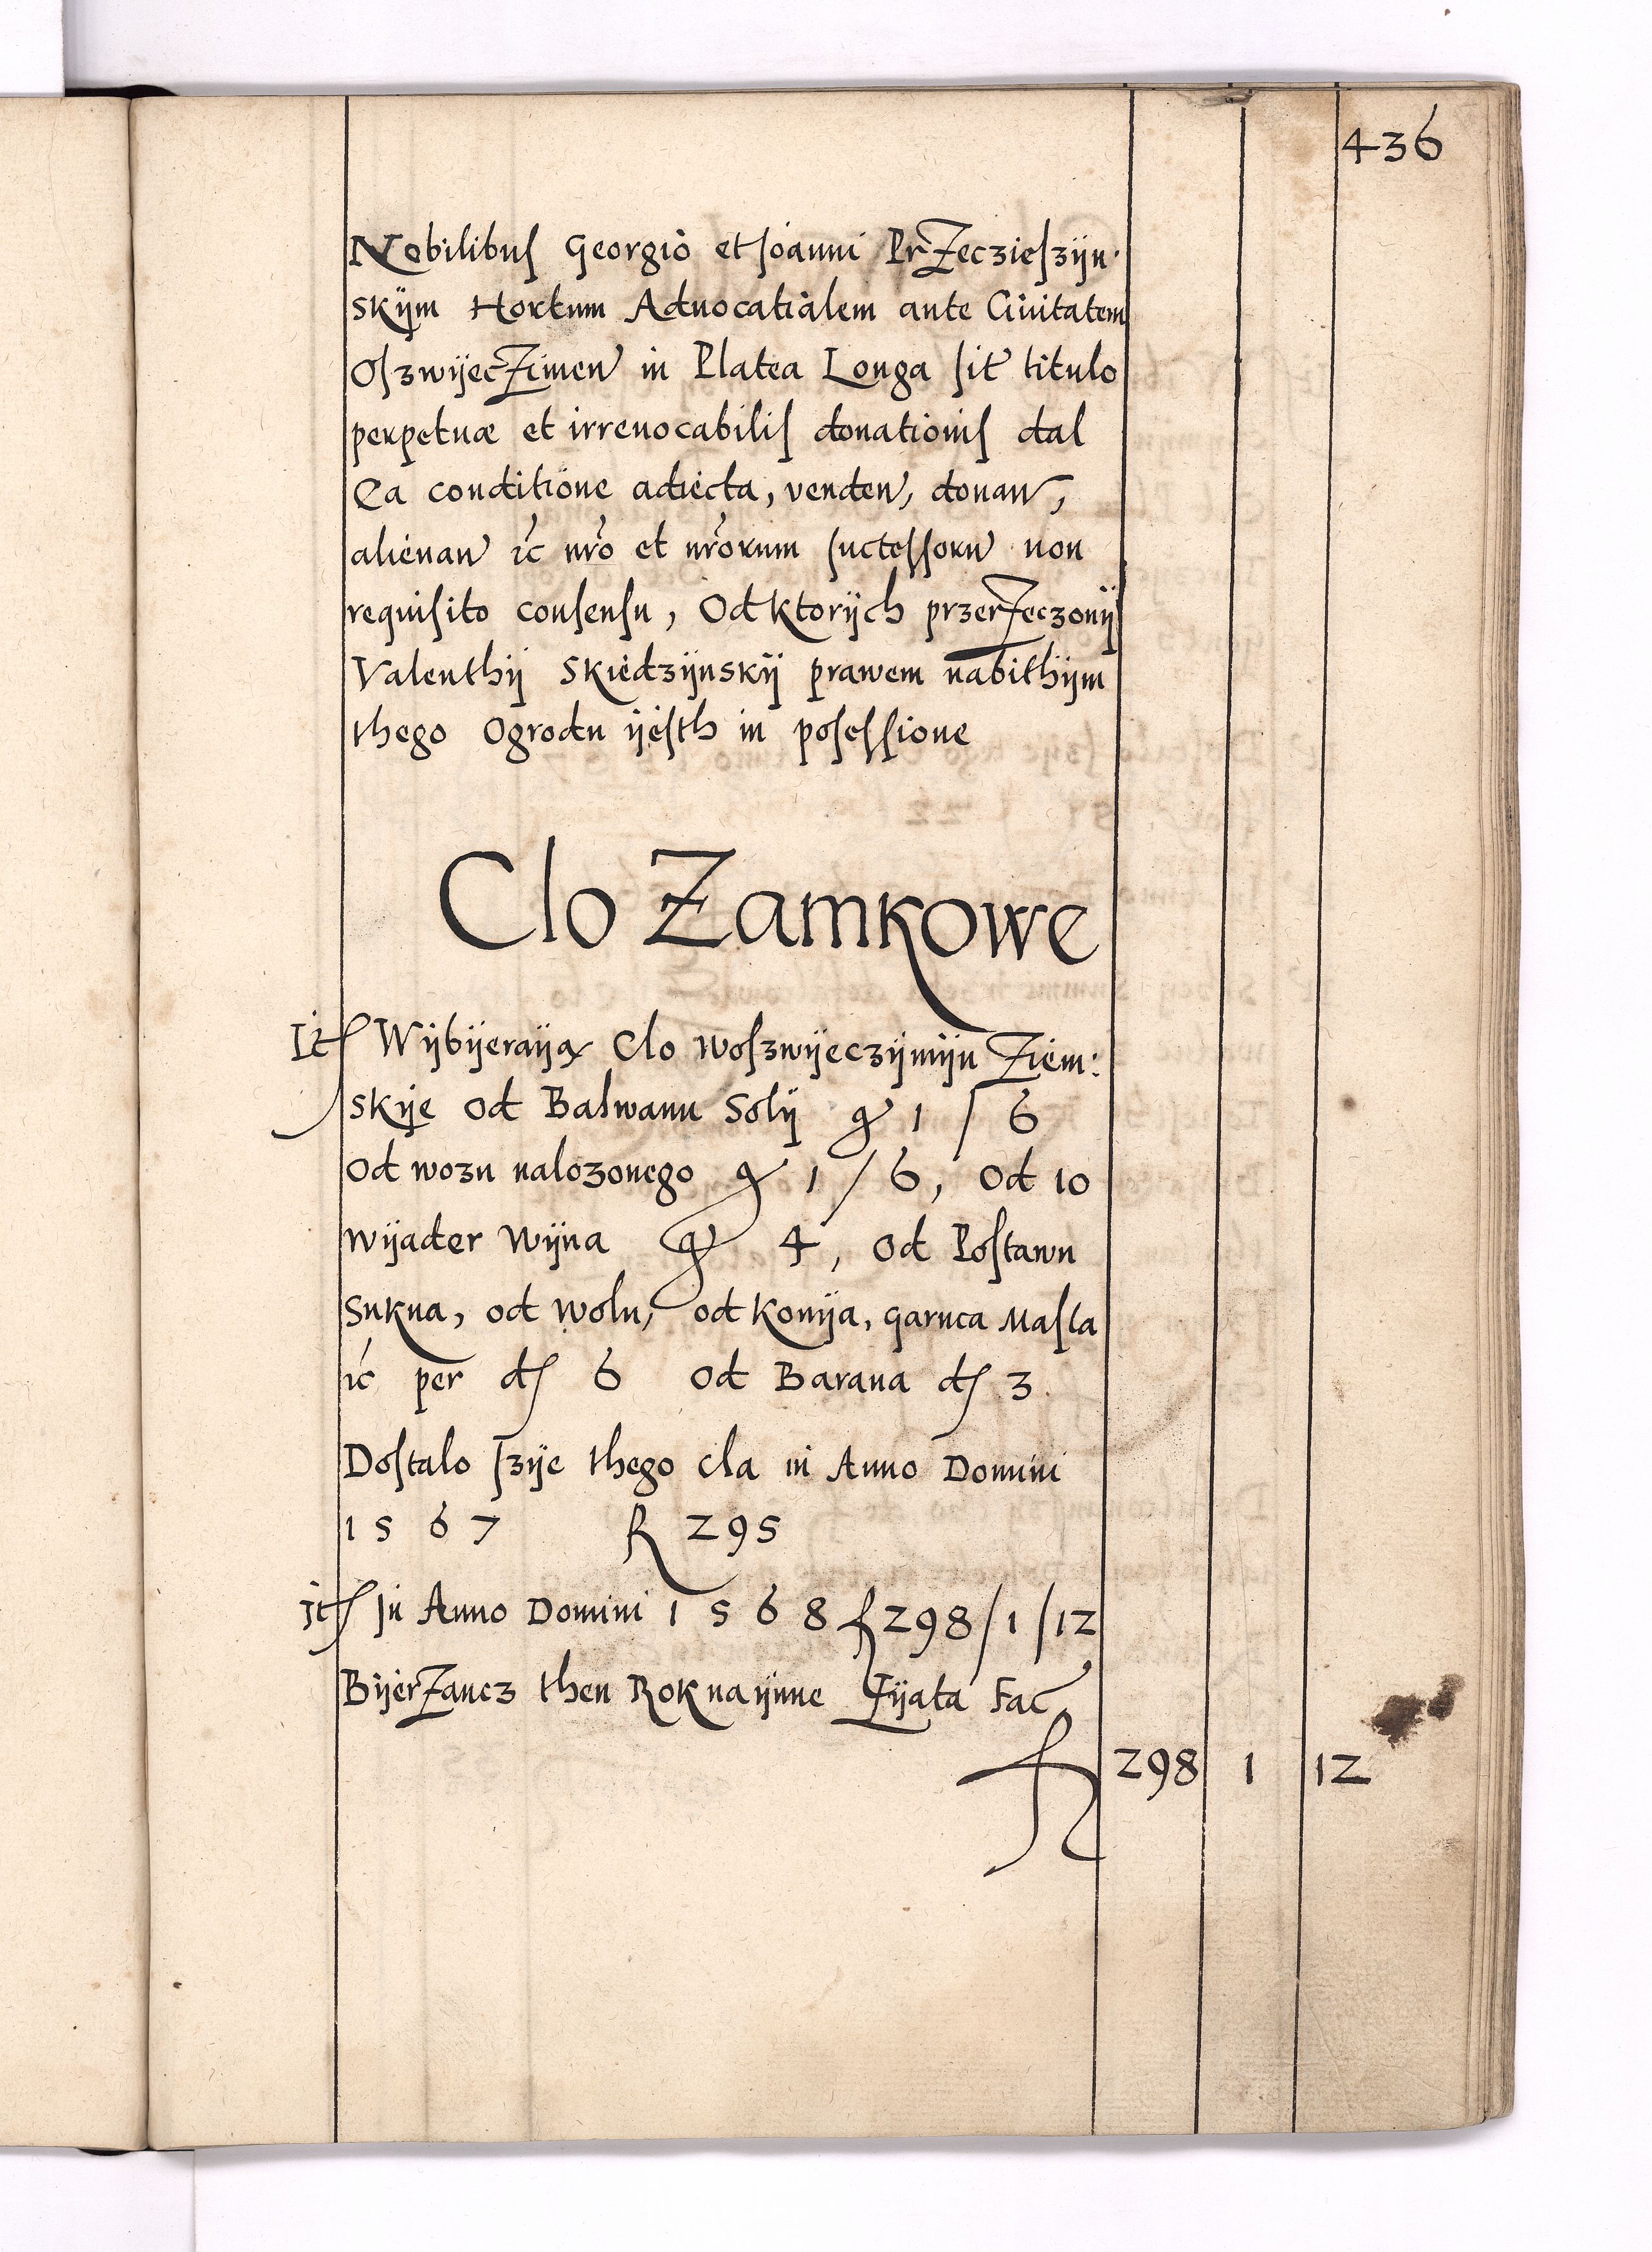 436
Nobilibuſ Georgio et Joanni Przeczieſzijn·
skijm Hortum Aduocatialem ante Ciuitatem
Oſzwijeczimen in Platea Longa ſit titulo
perpetuæ et irreuocabiliſ donationiſ dal
Ea conditione adiecta, venden, donan,
alienan ꝛc nr̃o et nr̃orum ſucceſſoru non
requiſito conſenſu, Od ktorijch przerzeczonij
Valenthij Skiedzijnskij prawem nabithijm
thego Ogrodu ijeſth in poſeſſione
Clo Zamkowe
It Wijbijeraija Clo woſzwijeczijmijn Ziem:
skije od Balwanu Solij g 1 / 6
Od wozu nalozonego g 1 / 6, Od 10
wijader Wijna g 4, Od Poſtawu
Sukna, od Wolu, od Konija, garnca Maſla
ꝛc per d 6 Od Barana d 3
Doſtalo ſzije thego cla in Anno Domini
1 5 6 7 f 295
It In Anno Domini 1 5 6 8 f 298 / 1 / 12
Bijerzancz then Rok na ijnne Lijata Fac
f 298 1 12